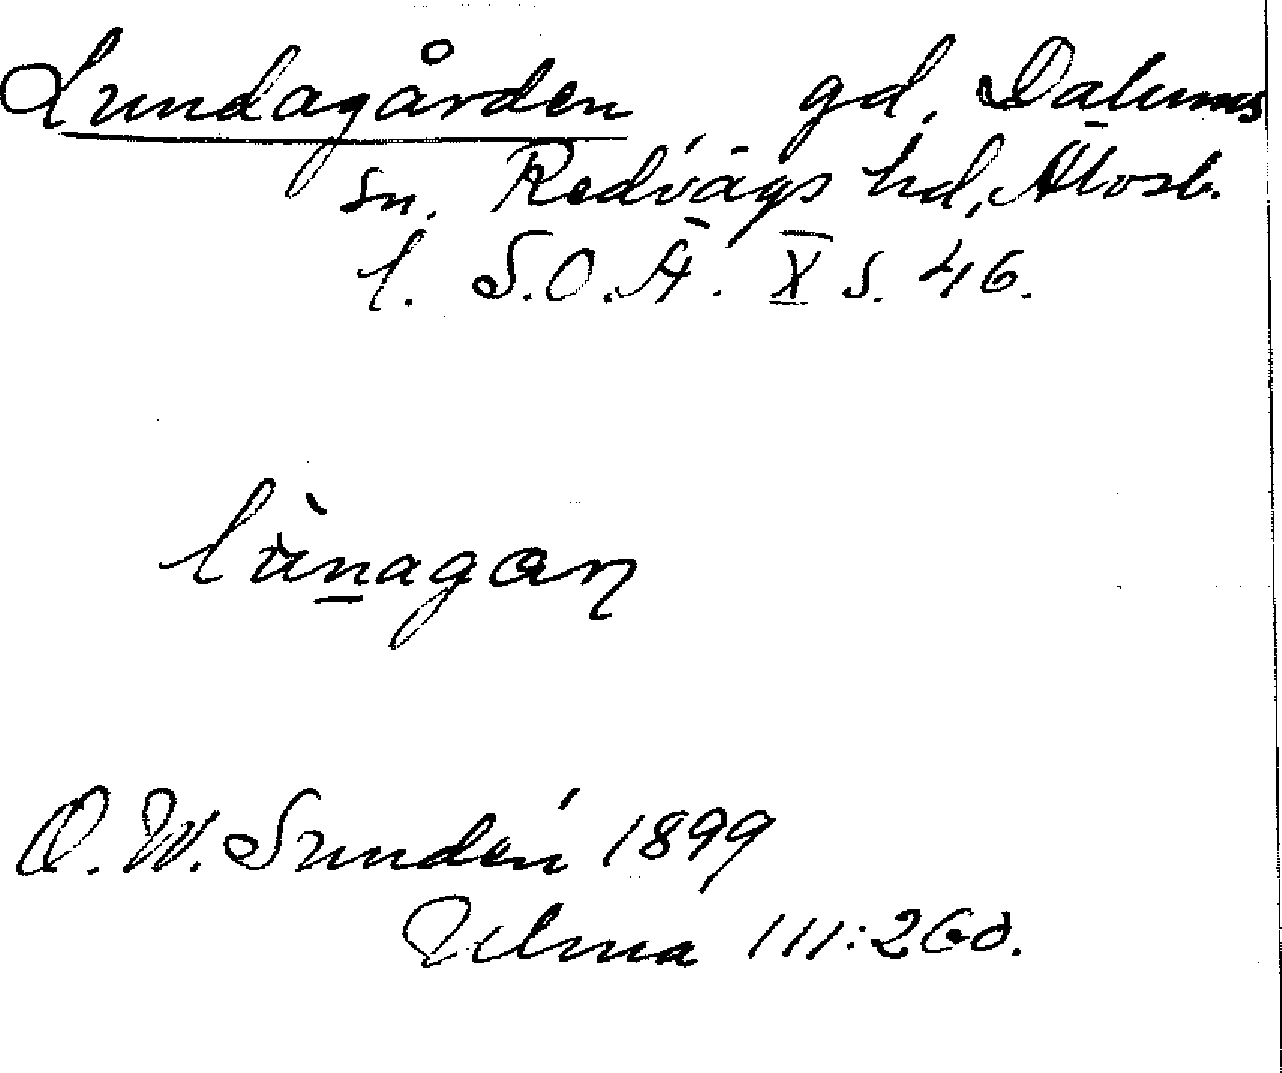 Lundagården gd, Dalums
sn. Redvägs hd, Älvsb.
l. S.O.Ä. X s. 46.
lùnagan
D. W. Sundén 1899
Ulma 111:260.